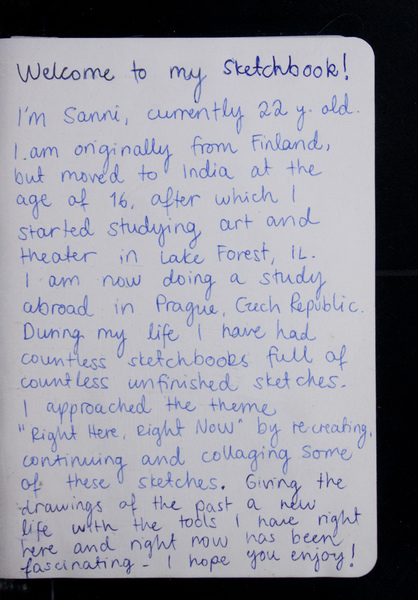 Welcome to my sketchbook!
I'm Sanni, currently 22 y. old.
I am originally from Finland,
but moved to India at the
age of 16, after which I
started studying art and
theater in Lake Forest, IL.
I am now doing a study
abroad in Prague, Czech Republic.
During my life I have had
countless sketchbooks full of
countless unfinished sketches.
I approached the theme
"Right Here, Right Now" by recreating,
continuing and collaging some
of these sketches. Giving the
drawings of the past a new
life with the tools I have right
here and right now has been
fascinating - I hope you enjoy!